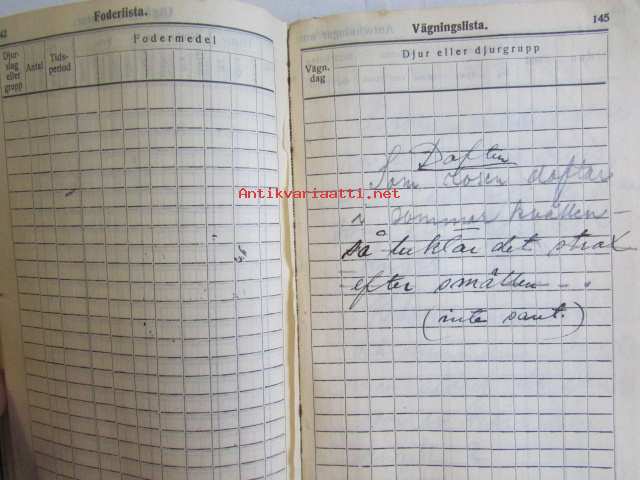 42
Foderlista.
Djur-
slag
eller
grupp
Antal
Tids-
period
Fodermedel
Vägningslista.
145
Vägn.
dag
Djur eller djurgrupp
Doften
Som rosen doftar
i sommar kvällen -
så luktar det strax
efter smällen - .
(inte sant.)
Antikvariaatti.net